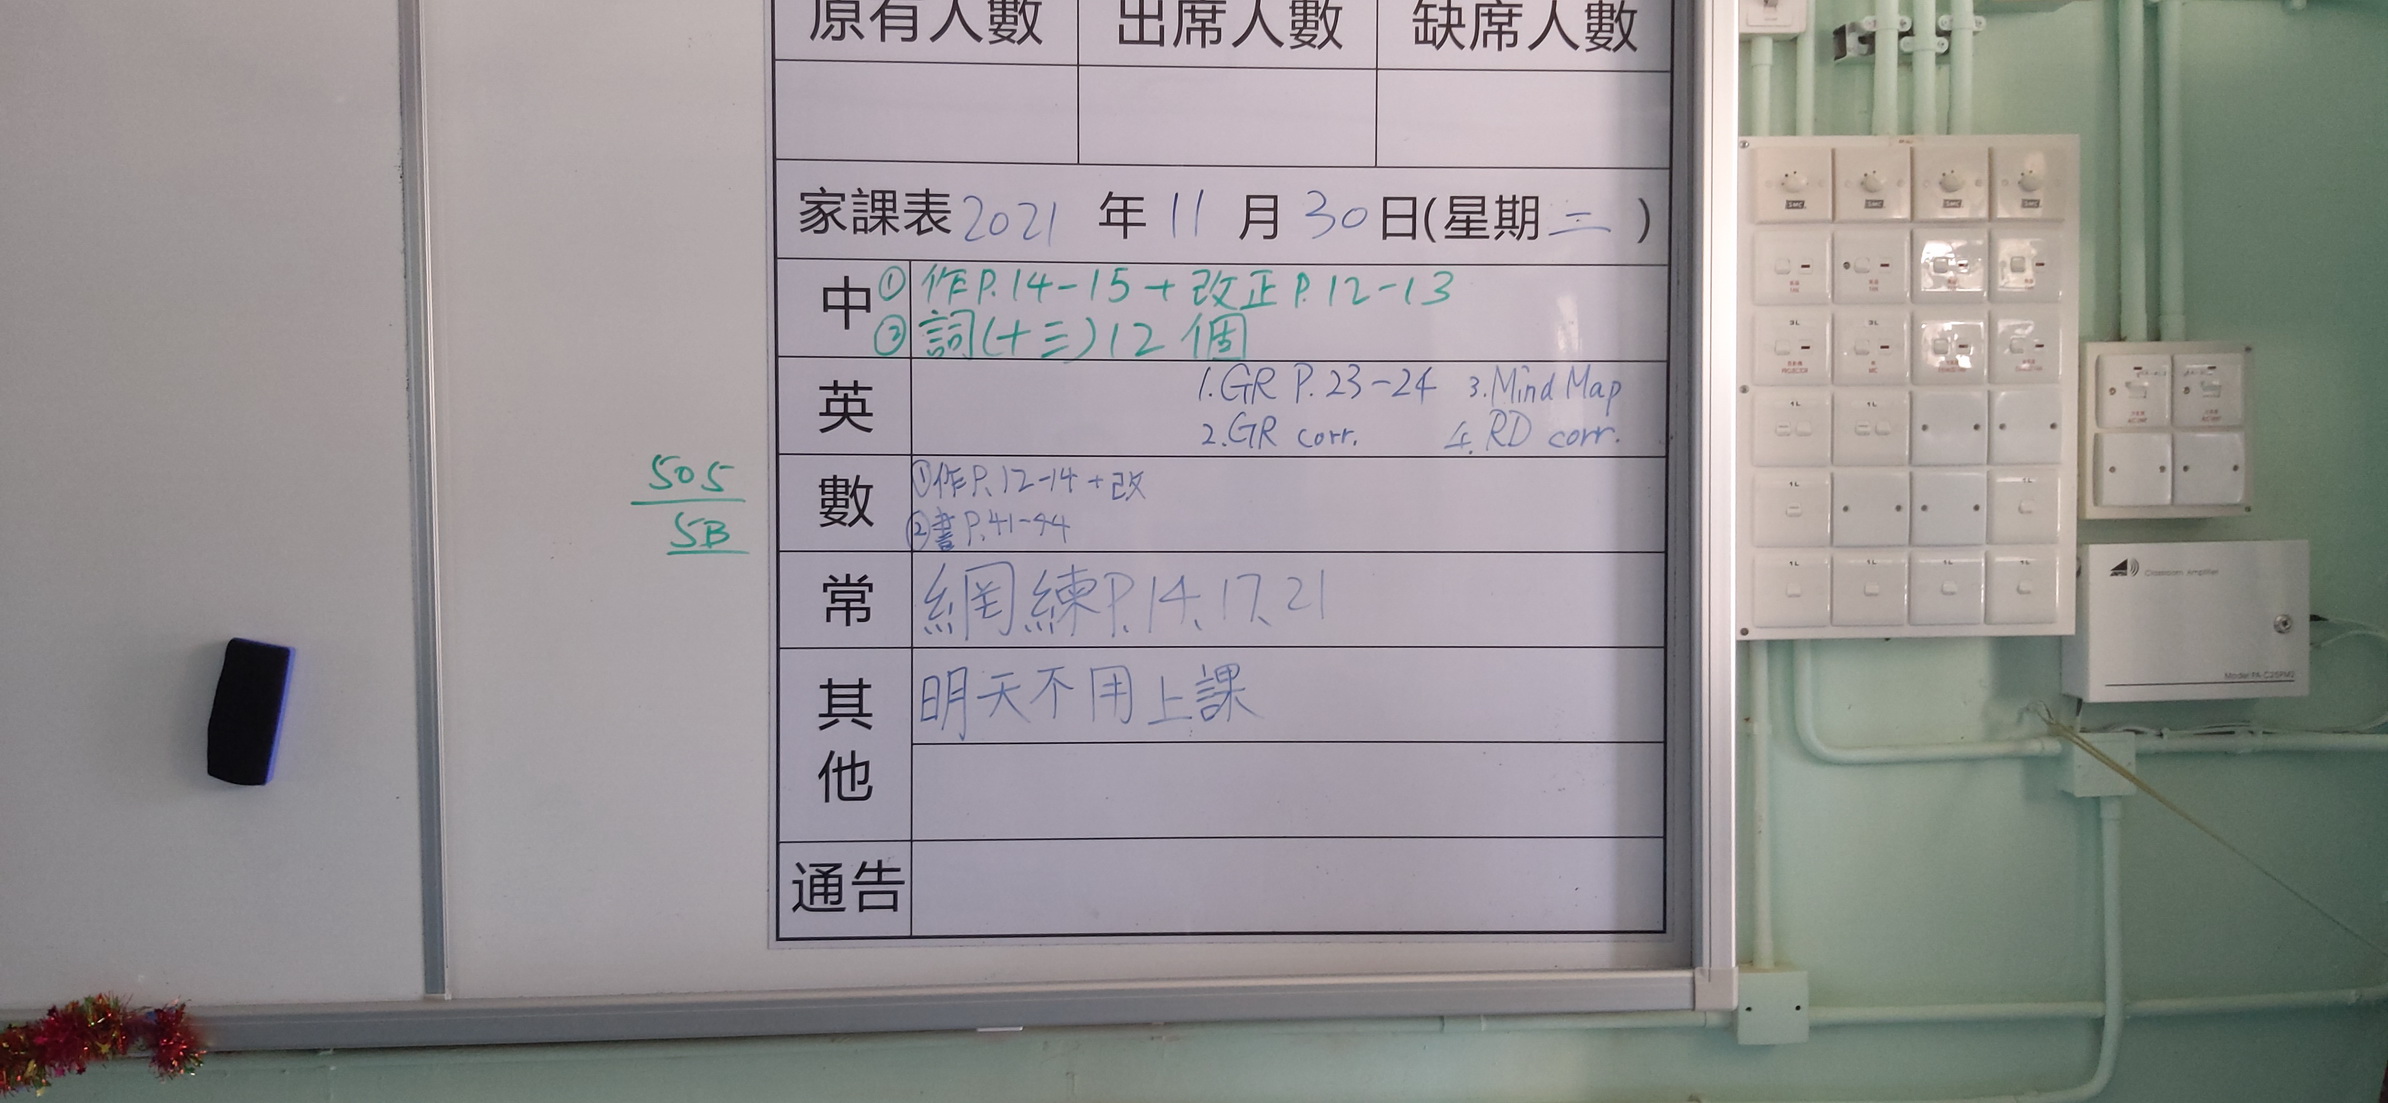 原有人數 出席人數 缺席人數
家課表 2021 年 11 月 30 日(星期二)
中 ① 作P.14-15+改正P.12-13
② 詞(十三)12個
英 1.GR P.23-24 3.Mind Map
2.GR corr. 4.RD corr.
數 ①作P.12-14+改
②書P.41-44
505
5B
常 網練P.14、17、21
其他 明天不用上課
通告
Classroom Amplifier
Model: PA-C25PM2